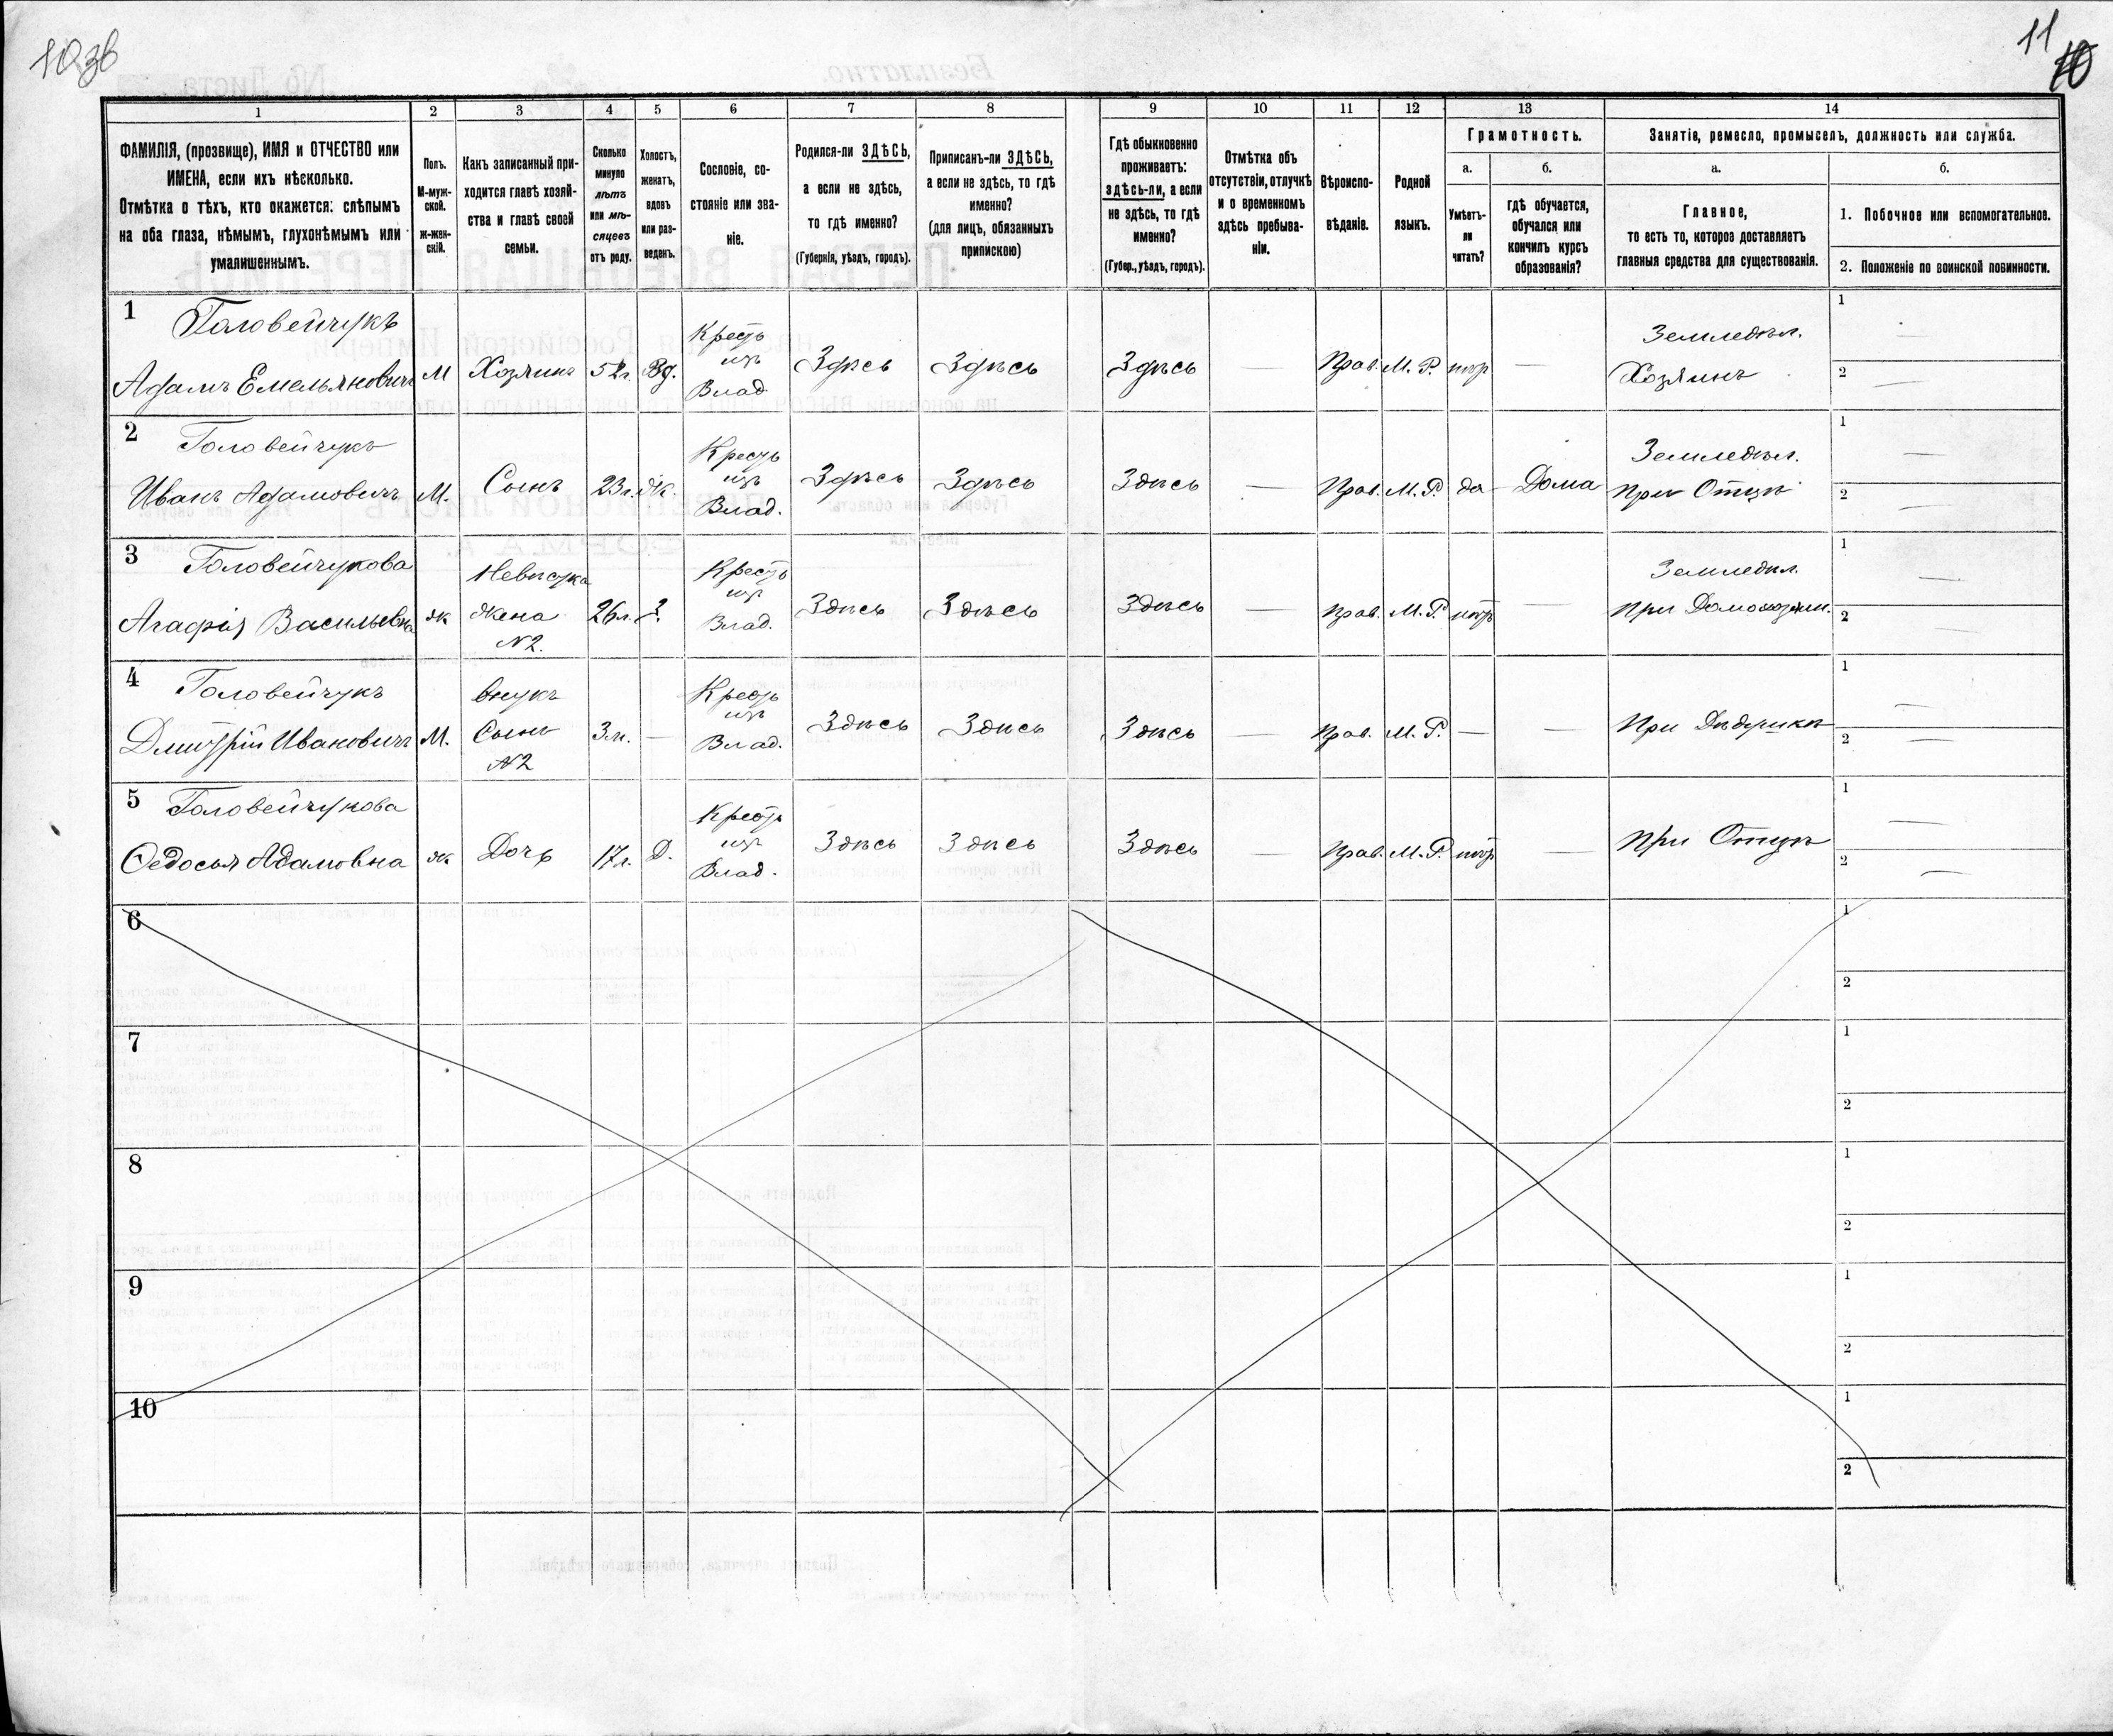 10зв
11
10
1 2 3 4 5 6 7 8 9 10 11 12 13 14
ФАМИЛІЯ, (прозвище), ИМЯ и ОТЧЕСТВО или
ИМЕНА, если ихъ нѣсколько.
Отмѣтка о тѣхъ, кто окажется: слѣпымъ
на оба глаза, нѣмымъ, глухонѣмымъ или
умалишеннымъ.
Полъ.
М-муж-
ской.
ж-жен-
скій.
Какъ записанный при-
ходится главѣ хозяй-
ства и главѣ своей
семьи.
Сколько
минуло
лѣтъ
или мѣ-
сяцевъ
отъ роду.
Холостъ,
женатъ,
вдовъ
или раз-
веденъ.
Сословіе, со-
стояніе или зва-
ніе.
Родился-ли ЗДѢСЬ,
а если не здѣсь,
то гдѣ именно?
(Губернія, уѣздъ, городъ).
Приписанъ-ли ЗДѢСЬ,
а если не здѣсь, то гдѣ
именно?
(для лицъ, обязанныхъ
припискою)
Гдѣ обыкновенно
проживаетъ:
здѣсь-ли, а если
не здѣсь, то гдѣ
именно?
(Губер., уѣздъ, городъ).
Отмѣтка объ
отсутствіи, отлучкѣ
и о временномъ
здѣсь пребыва-
ніи.
Вѣроиспо-
вѣданіе.
Родной
языкъ.
Грамотность.
а.
Умѣетъ-
ли
читать?
б.
гдѣ обучается,
обучался или
кончилъ курсъ
образованія?
Занятіе, ремесло, промыселъ, должность или служба.
а.
Главное,
то есть то, которое доставляетъ
главныя средства для существованія.
б.
1. Побочное или вспомогательное.
2. Положеніе по воинской повинности.
1 Головейчукъ
Адамъ Емельяновичъ
М
Хозяинъ
52 г.
Вд.
Крестъ
изъ
Влад
Здѣсь
Здѣсь
Здѣсь
—
Прав.
М. Р.
нѣтъ
—
Земледѣл.
Хозяинъ
1 —
2 —
2 Головейчукъ
Иванъ Адамовичъ
М.
Сынъ
23 г.
Ж.
Крестъ
изъ
Влад.
Здѣсь
Здѣсь
Здѣсь
—
Прав.
М. Р.
да
Дома
Земледѣл.
при Отцѣ
1 —
2 —
3 Головейчукова
Агафія Васильевна
ж
Невѣстка
жена
N2.
26 л.
З.
Крестъ
изъ
Влад.
Здѣсь
Здѣсь
Здѣсь
—
прав.
М. Р.
нѣтъ
Земледѣл.
при Домохозяин.
1 —
2 —
4 Головейчукъ
Дмитрій Ивановичъ
М.
внукъ
Сынъ
N2
3 м.
—
Крестъ
изъ
Влад.
Здѣсь
Здѣсь
Здѣсь
—
прав.
М. Р.
—
—
При Дѣдушкѣ
1 —
2 —
5 Головейчукова
Ѳедосья Адамовна
ж
Дочь
17 л.
Д.
Крестъ
изъ
Влад.
Здѣсь
Здѣсь
Здѣсь
—
Прав.
М. Р.
нѣтъ
—
При Отцѣ
1 —
2 —
6
1
2
7
1
2
8
1
2
9
1
2
10
1
2